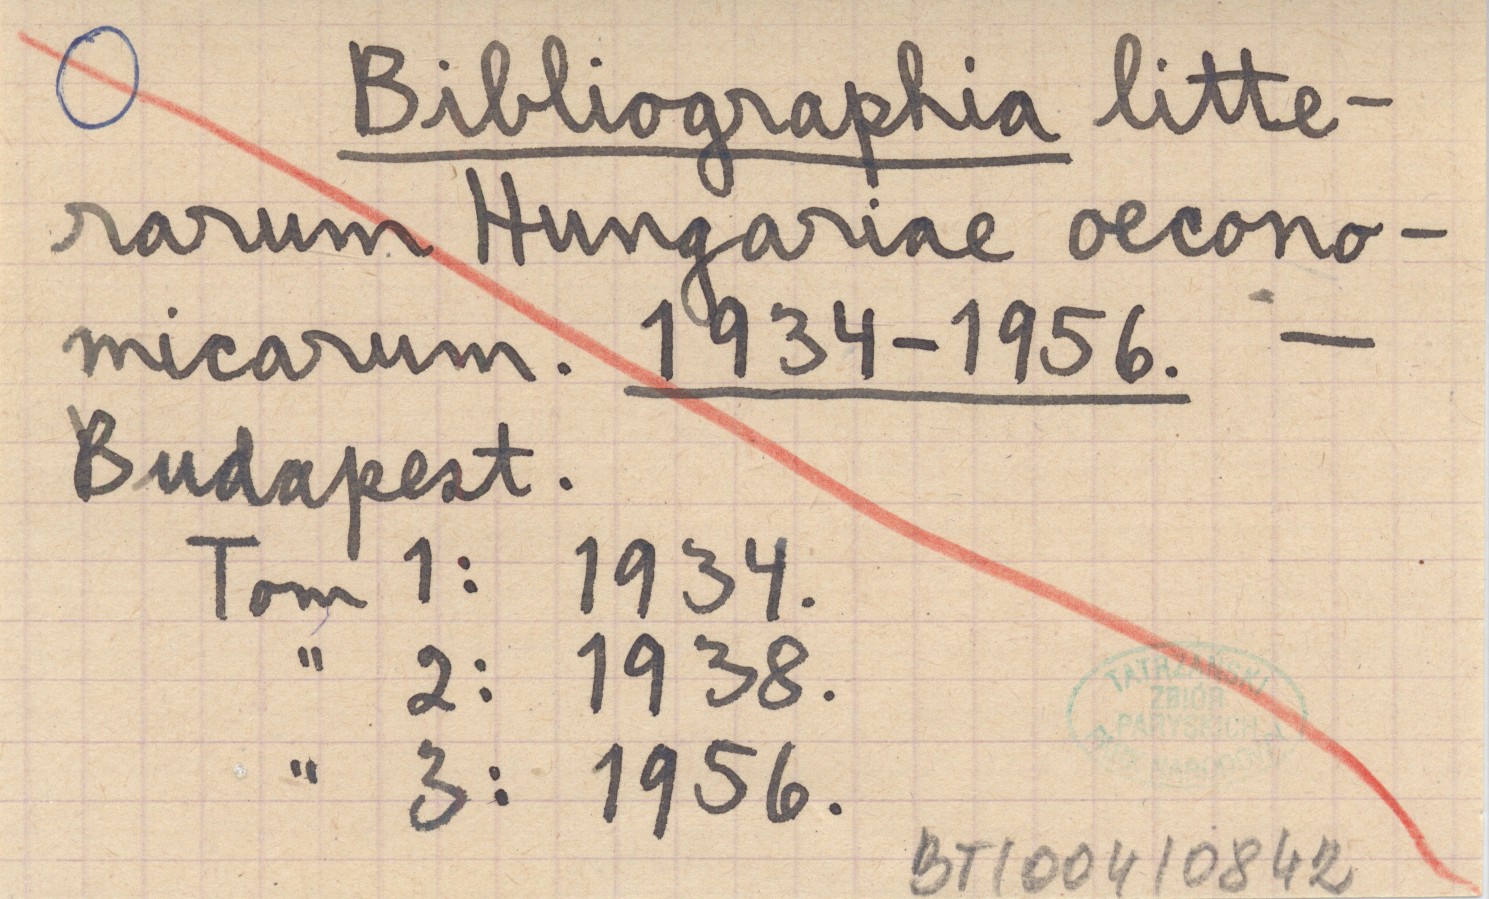 Bibliographia litte-
rarum Hungariae oecono-
micarum. 1934-1956. —
Budapest.
Tom 1: 1934.
" 2: 1938.
" 3: 1956.
TATRZAŃSKI
ZBIÓR
PARYSKICH
BT/004/0842